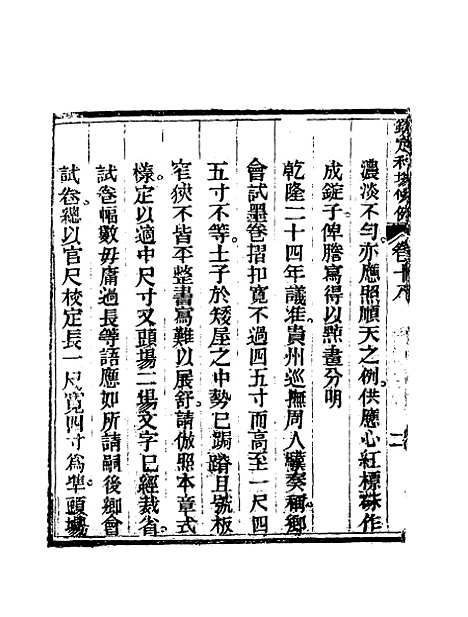 欽定科場條例 卷十八
濃淡不勻亦應照順天之例供應心紅標硃作
成錠子俾謄寫得以㸃畫分明
乾隆二十四年議准貴州巡撫周人驥奏稱鄉
會試墨卷摺扣寬不過四五寸而高至一尺四
五寸不等士子於矮屋之中勢已跼蹐且號板
窄狹不皆平整書寫難以展舒請倣照本章式
樣定以適中尺寸又頭場二場文字已經裁省
試卷幅數毋庸過長等語應如所請嗣後鄉會
試卷總以官尺校定長一尺寬四寸為準頭場
二